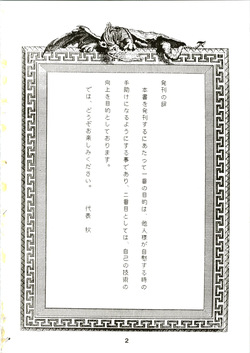 発刊の辞
本書を発刊するにあたって一番の目的は、他人様が自慰する時の
手助けになるようにする事であり、二番目としては、自己の技術の
向上を目的としております。
では、どうぞお楽しみください。
代表 秋
2